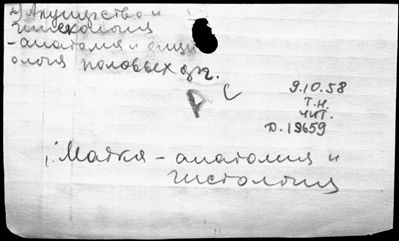 2) Акушерство и
гинекология
-анатомия и физи
ология половых орг.
А С
9.10.58
Т.Н.
ЧИТ.
Д.19659
1. Матка - анатомия и
гистология